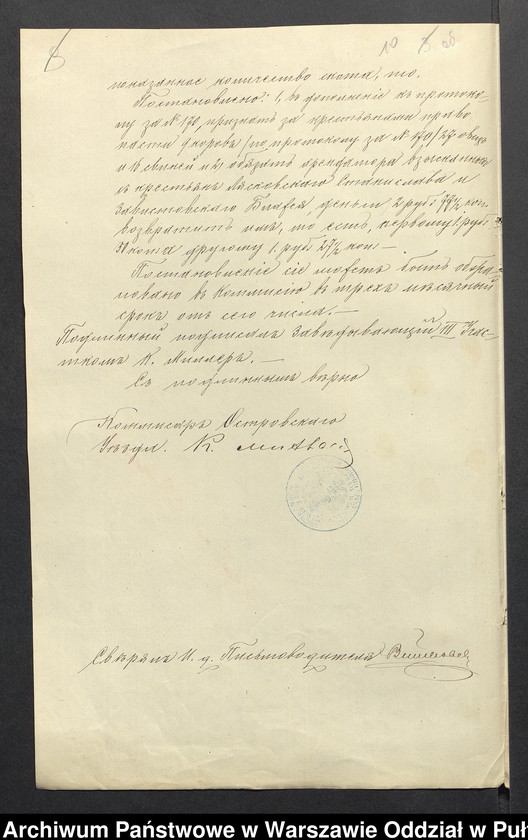 10 об
показанное количество скота, то.
Постановлено: 1, въ дополненіе къ протоко-
лу за № 170, признать за крестьянами право
пасти коровъ /по протоколу за № 170/ 27 овецъ
и 12 свиней и 2, обязать арендатора взысканныя
съ крестьянъ Лясковскаго Станислава и
Завистовскаго Блажея деньги 2 руб. 77½ коп.
возвратить имъ, то есть, первому 1 руб.
другому 1 руб. 27½ коп.—
Постановленіе сіе можетъ быть обжа-
ловано въ Коммисію въ трехъ мѣсячный
срокъ отъ сего числа.—
Подлинный подписалъ Завѣдывающій III Уча-
сткомъ К. Миллеръ.—
Съ подлиннымъ вѣрно
Коммисаръ Островскаго
Уѣзда. К.
Свѣрялъ И. д. Письмоводителя
Archiwum Państwowe w Warszawie Oddział w Puł